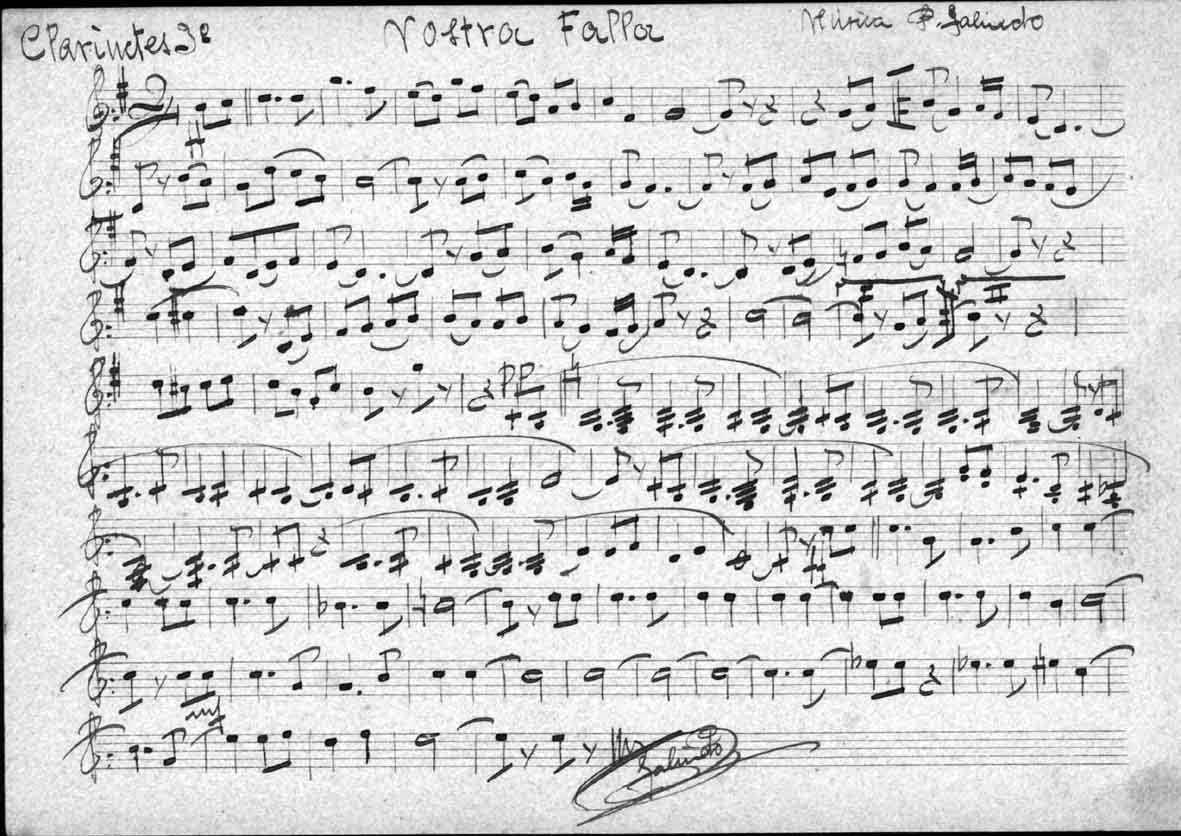 Clarinetes 3º Nostra Falla Música P. Galindo
pp
mf
Galindo